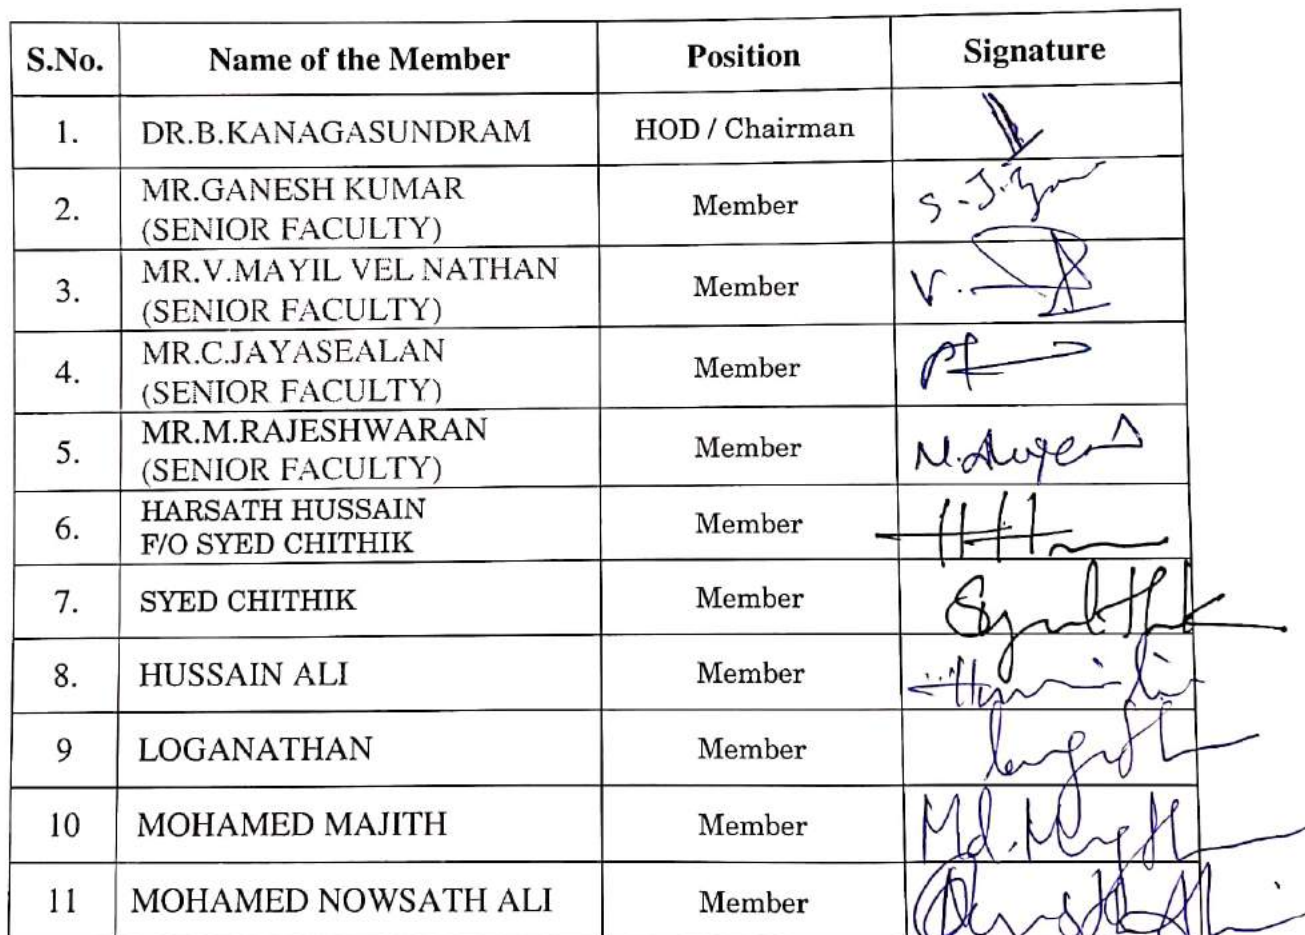 S.No. Name of the Member Position Signature
1. DR.B.KANAGASUNDRAM HOD / Chairman
2. MR.GANESH KUMAR
(SENIOR FACULTY) Member
3. MR.V.MAYIL VEL NATHAN
(SENIOR FACULTY) Member V.
4. MR.C.JAYASEALAN
(SENIOR FACULTY) Member
5. MR.M.RAJESHWARAN
(SENIOR FACULTY) Member
6. HARSATH HUSSAIN
F/O SYED CHITHIK Member
7. SYED CHITHIK Member
8. HUSSAIN ALI Member
9 LOGANATHAN Member
10 MOHAMED MAJITH Member Md.
11 MOHAMED NOWSATH ALI Member